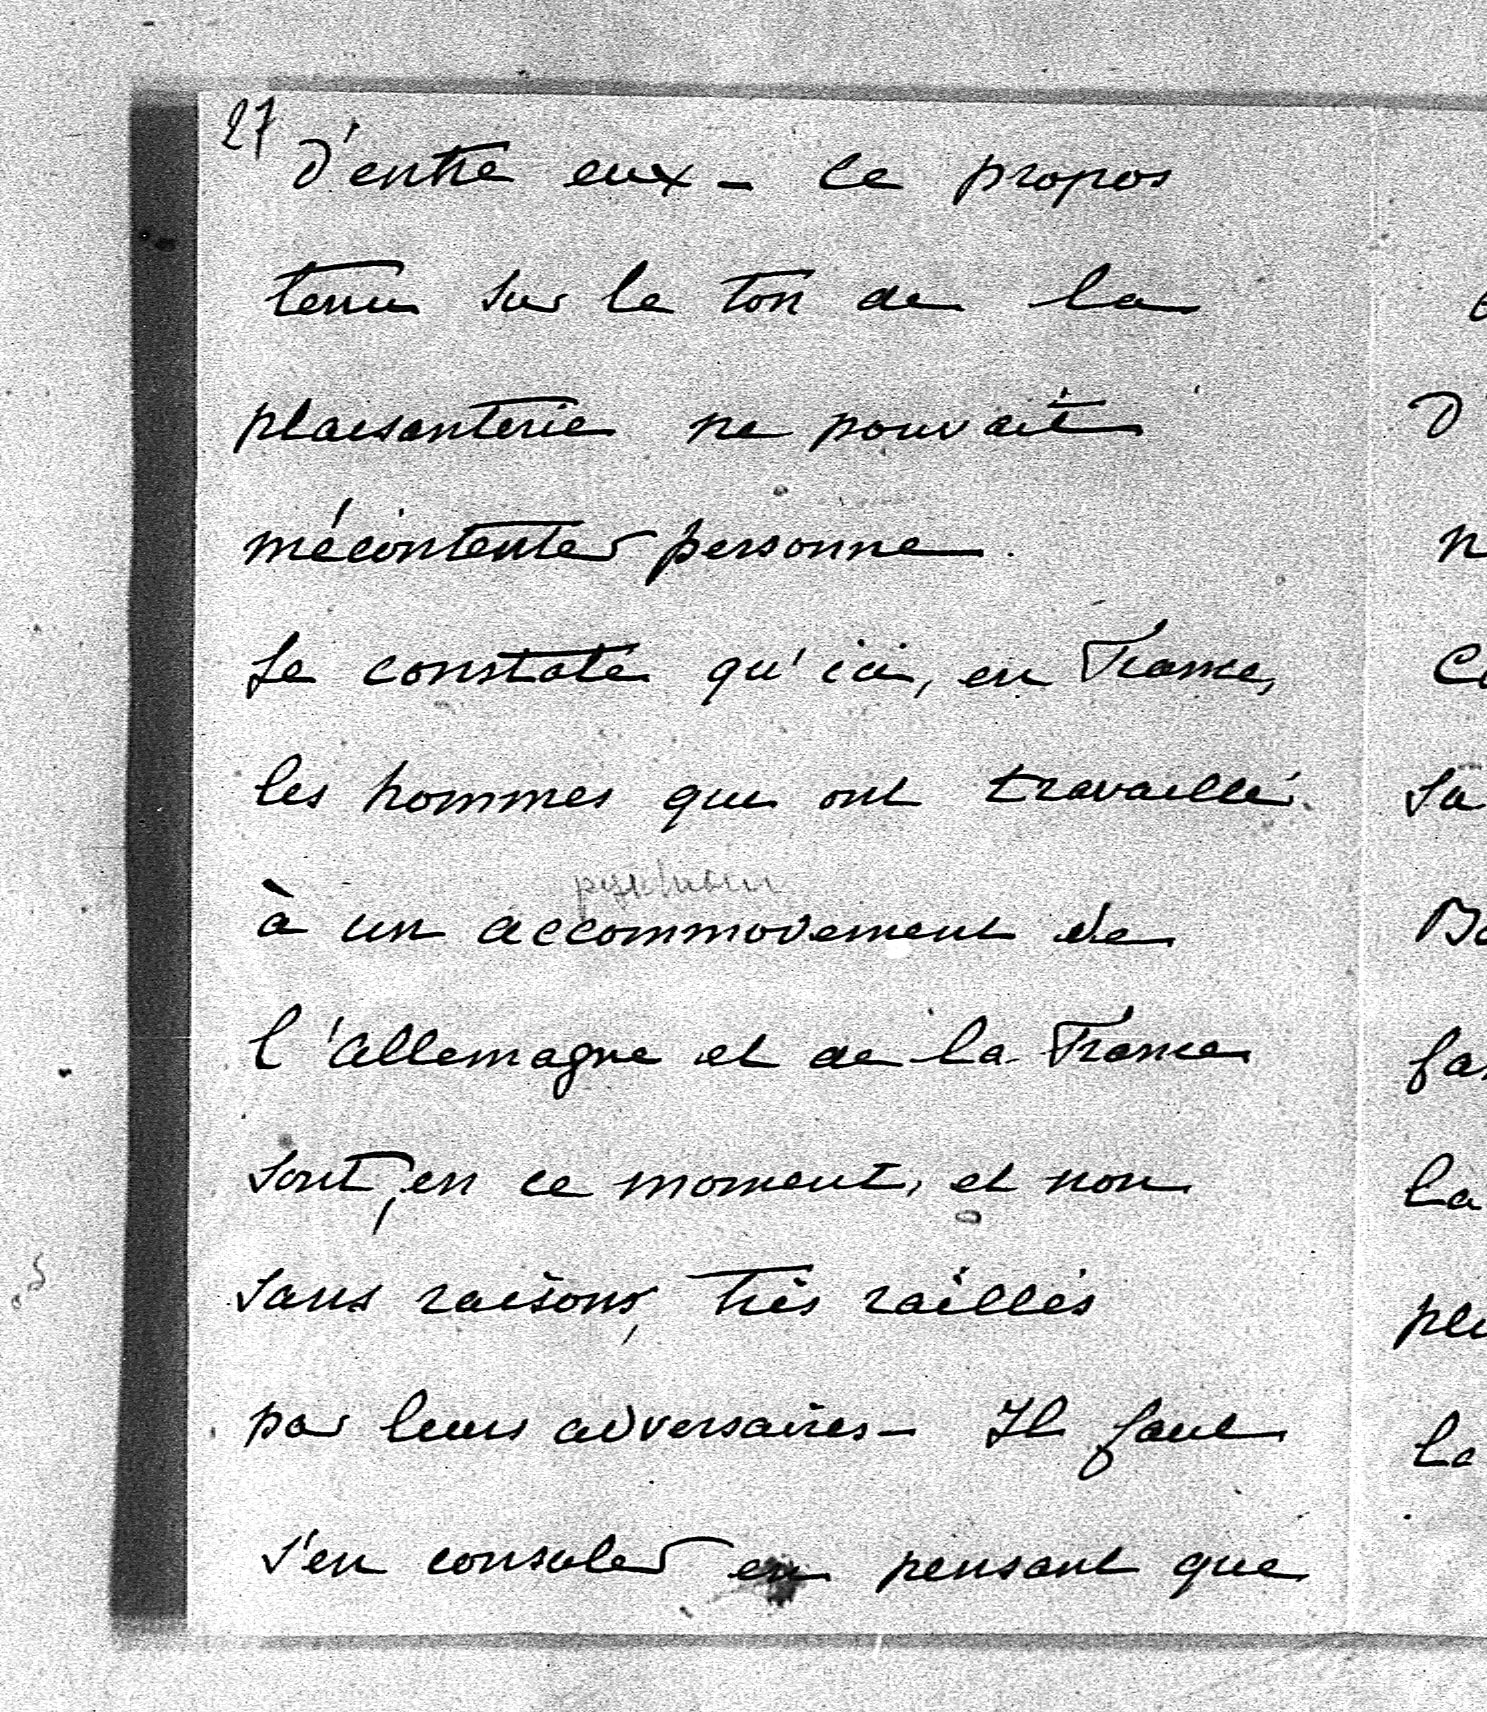 27
d'entre eux - Ce propos
tenu sur le ton de la
plaisanterie ne pouvait
mécontenter personne.
Je constate qu'ici, en France,
les hommes qui ont travaillé
à un accommodement de
l'Allemagne et de la France
sont, en ce moment, et non
sans raisons, très raillés
par leurs adversaires - Il faut
s'en consoler en pensant que